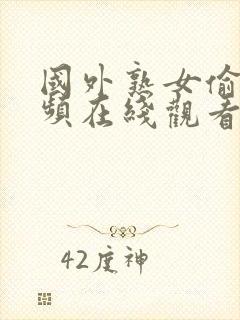 國外熟女偷
頻在綫觀看
42度神